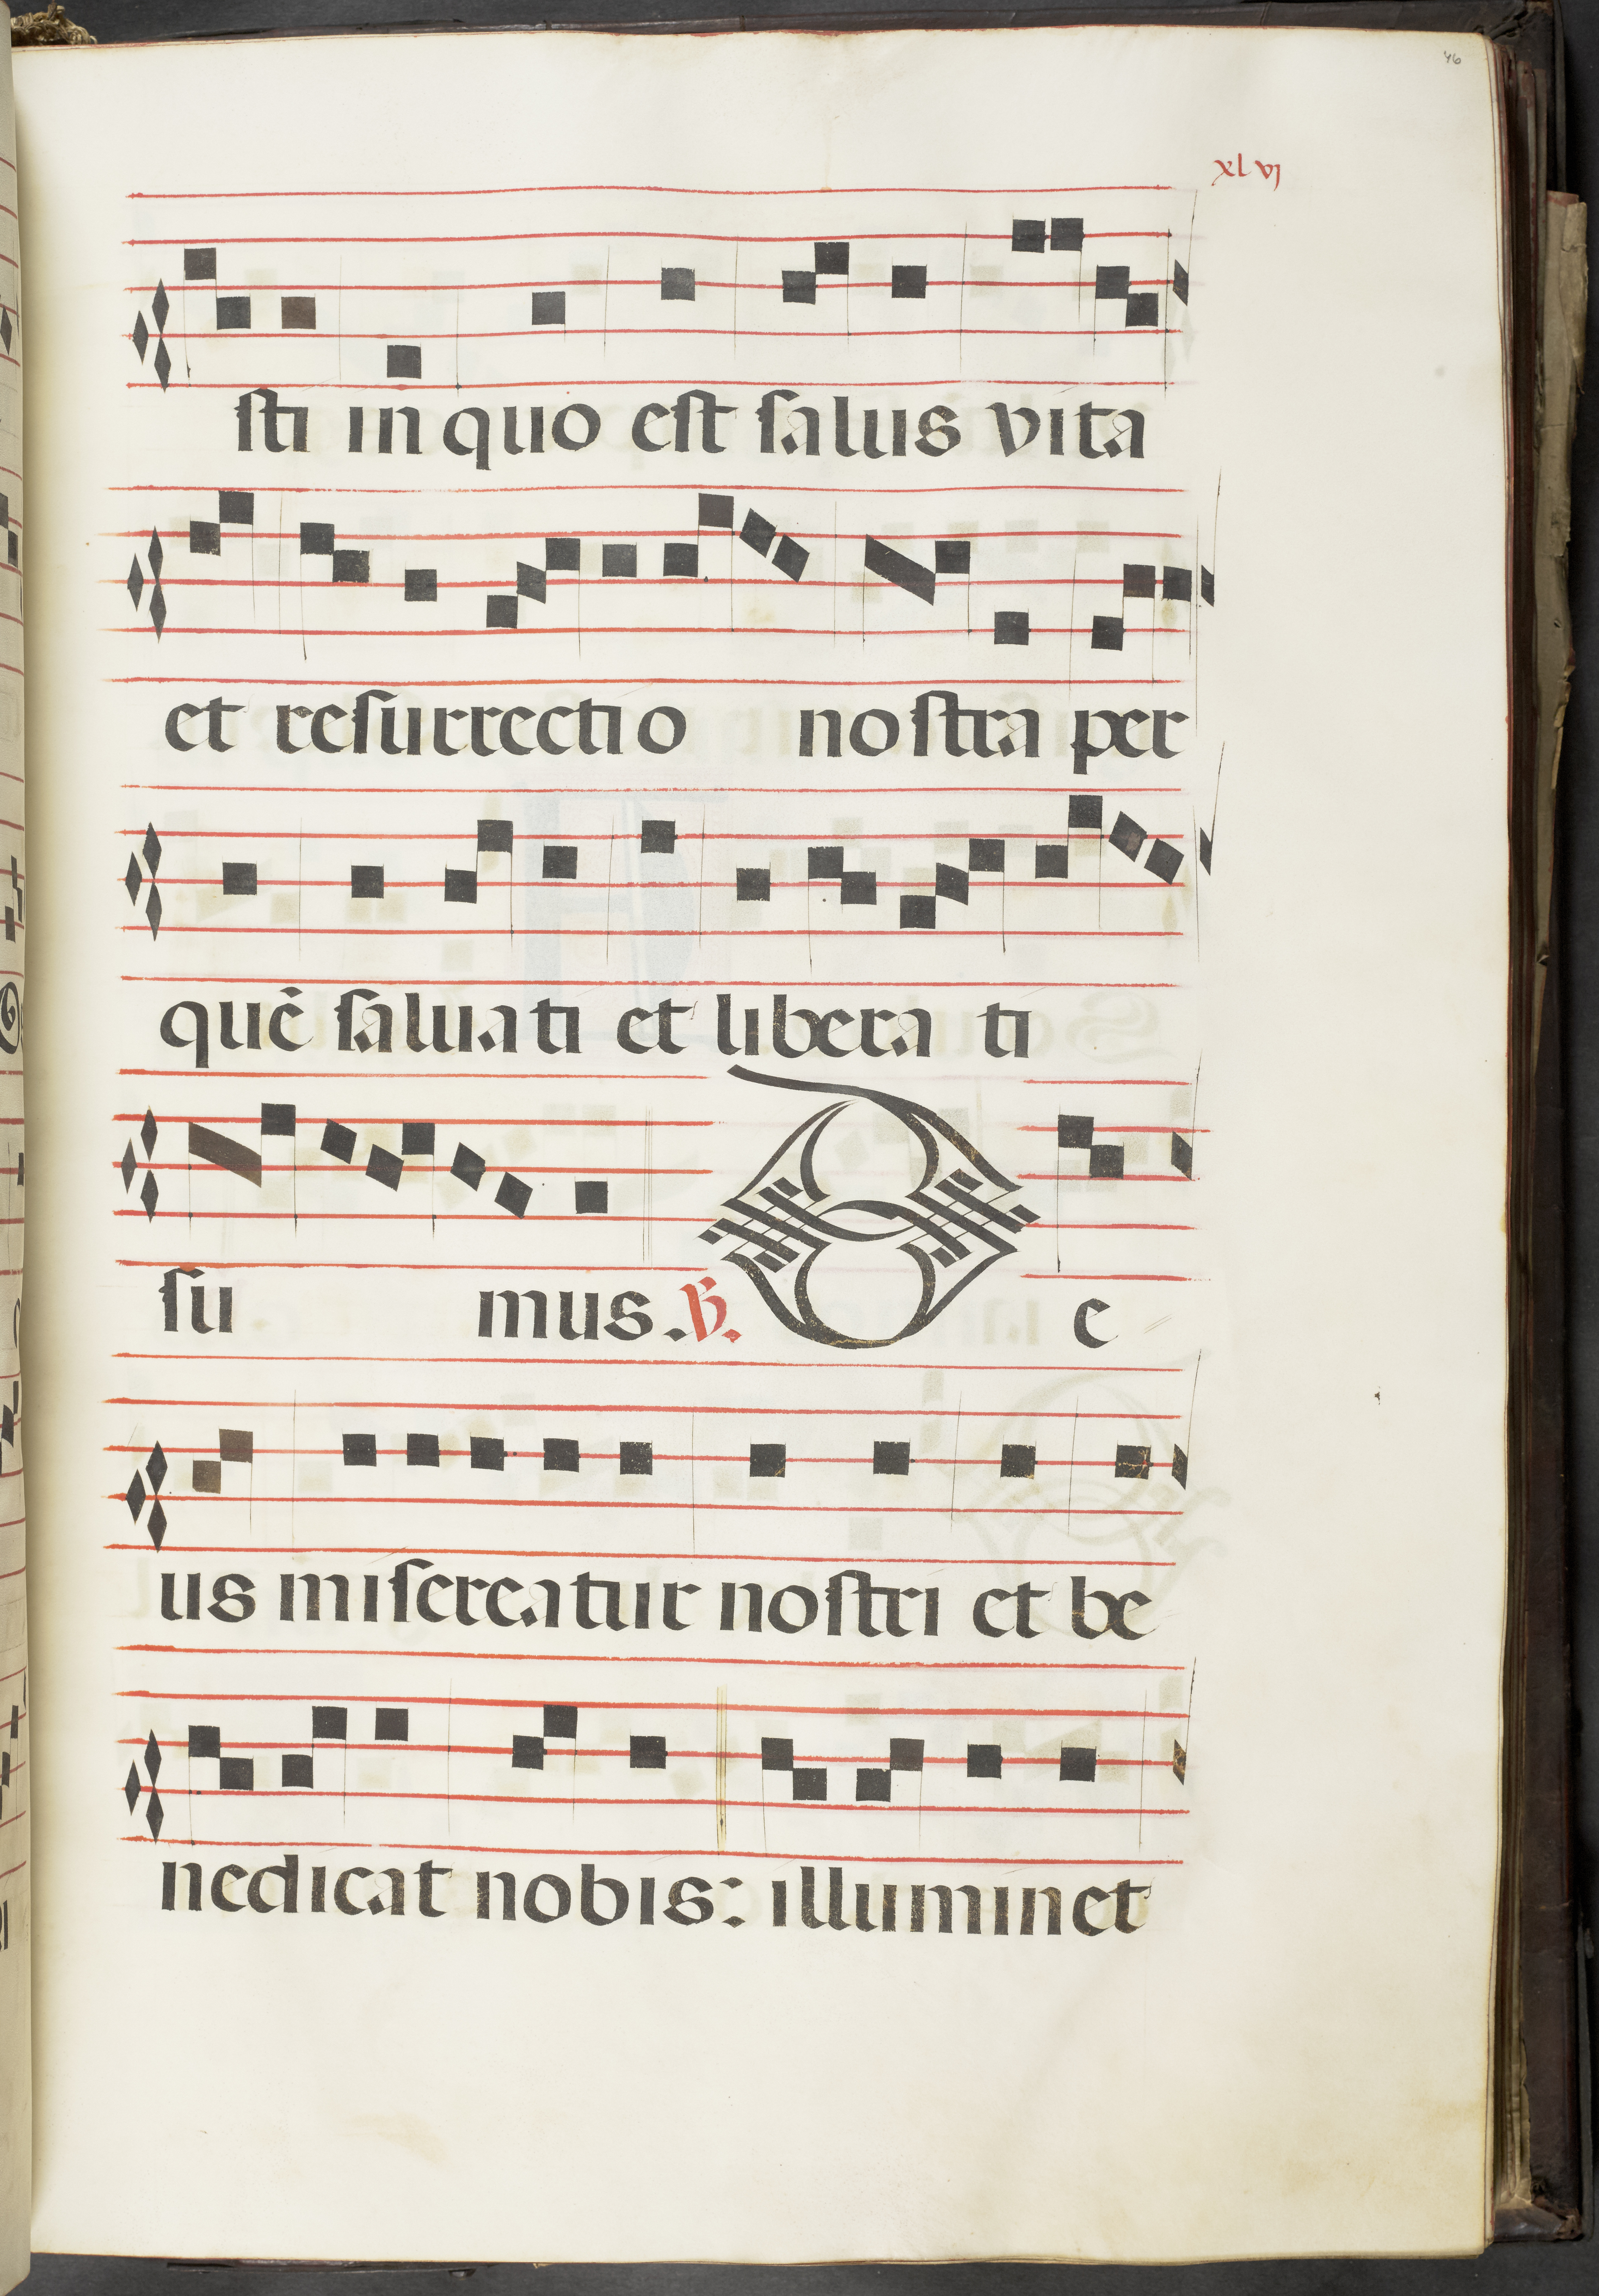 46
xlvj
sti in quo est salus vita
et resurrectio nostra per
quē saluati et libera ti
su mus. ℣. D e
us misereatur nostri et be
nedicat nobis: illuminet